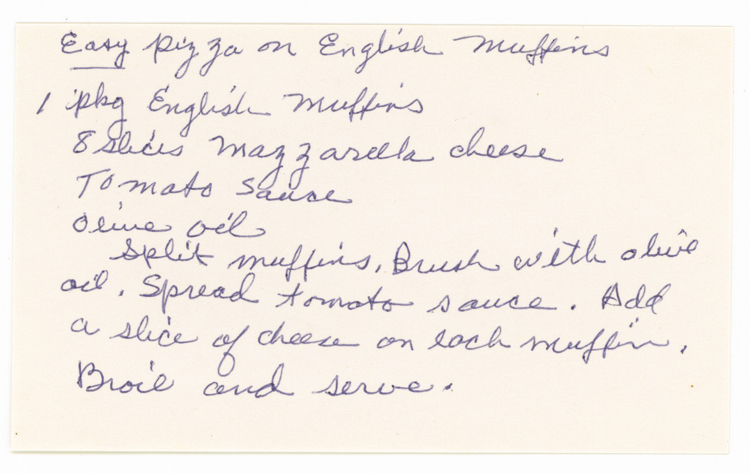 Easy Pizza on English Muffins
1 pkg English Muffins
8 slices Mazzarella cheese
Tomato Sauce
Olive oil
Split muffins. Brush with olive
oil. Spread tomato sauce. Add
a slice of cheese on each muffin.
Broil and serve.